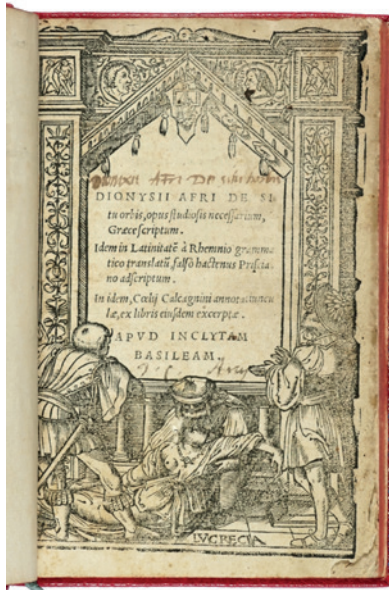 Afri De situ orbis
DIONYSII AFRI DE SI⸗
tu orbis, opus studiosis necessarium,
Græce scriptum.
Idem in Latinitatẽ à Rhemnio gramma
tico translatũ, falsò hactenus Priscia⸗
no adscriptum.
In idem, Cœlij Calcagnini annotatiuncu
læ, ex libris eiusdem excerptæ.
APVD INCLYTAM
BASILEAM.
LVCRECIA